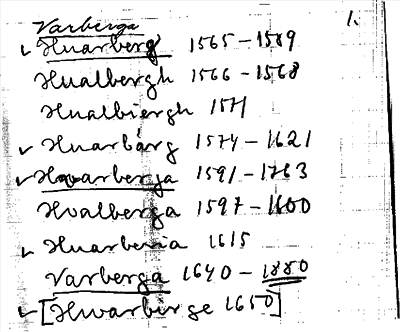 Varberga 1.
✓ Huarberg 1565-1589
Hualbergh 1566-1568
Hualbiergh 1571
✓ Huarbärg 1574-1621
✓ Hwarberga 1591-1763
Hvalberga 1597-1600
✓ Huarberia 1615
Varberga 1640-1880
✓ [Hwarbirge 1650]